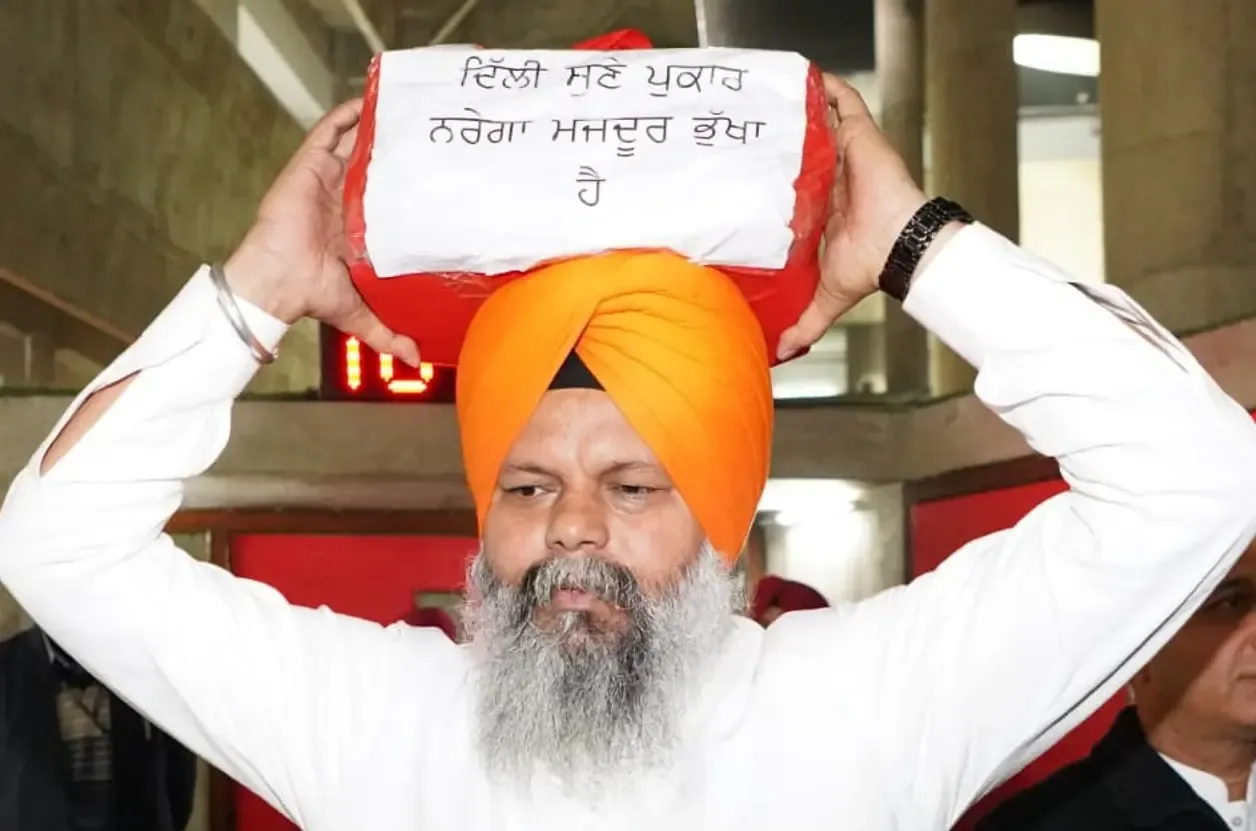 ਦਿੱਲੀ ਸੁਣੇ ਪੁਕਾਰ
ਨਰੇਗਾ ਮਜਦੂਰ ਭੁੱਖਾ
ਹੈ